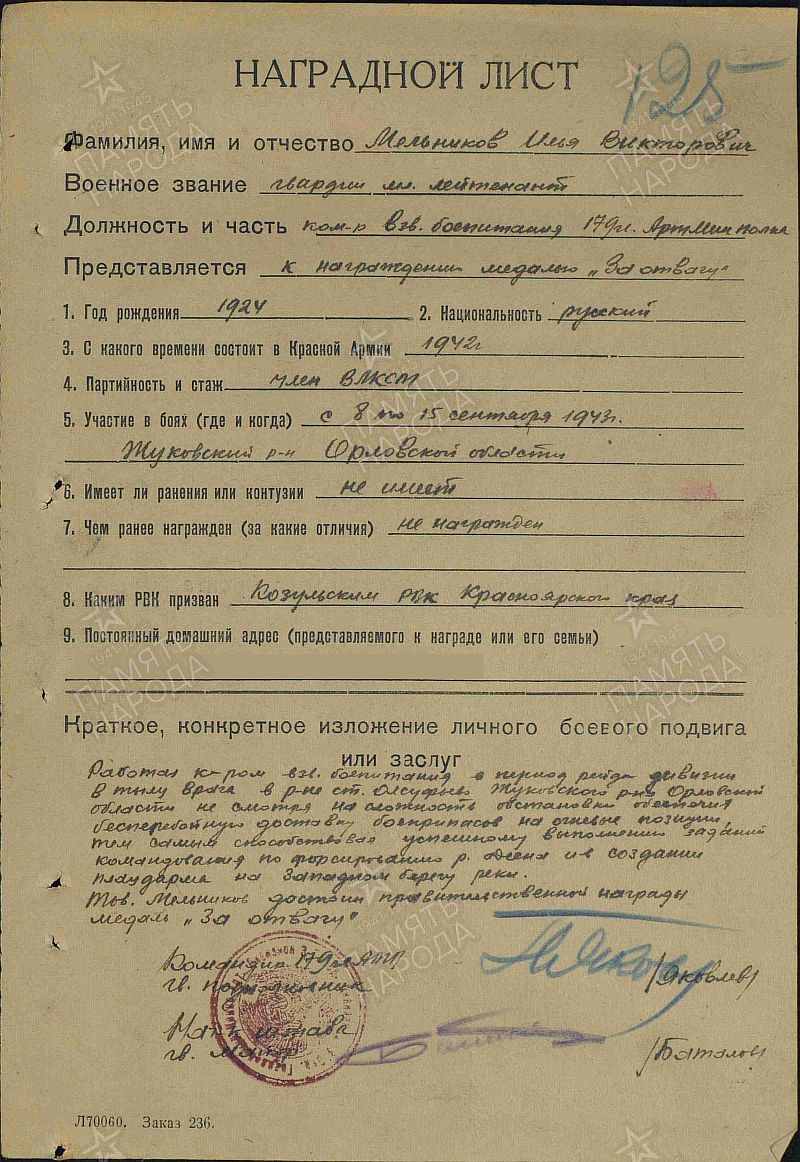 НАГРАДНОЙ ЛИСТ
125
Фамилия, имя и отчество Мельников Илья Викторович
Военное звание гвардии мл. лейтенант
Должность и часть ком-р взв. боепитания 179 гв. АртМинполка
Представляется к награждению медалью „За отвагу"
1. Год рождения 1924 2. Национальность русский
3. С какого времени состоит в Красной Армии 1942г
4. Партийность и стаж член ВЛКСМ
5. Участие в боях (где и когда) с 8 по 15 сентября 1943г.
Жуковский р-н Орловской области
6. Имеет ли ранения или контузии не имеет
7. Чем ранее награжден (за какие отличия) не награжден
8. Каким РВК призван Козульским РВК Красноярского края
9. Постоянный домашний адрес (представляемого к награде или его семьи)
Краткое, конкретное изложение личного боевого подвига
или заслуг
Работая к-ром взв. боепитания в период рейда дивизии
в тылу врага в р-не ст. Олсуфьево Жуковского р-на Орловской
области не смотря на сложность обстановки обеспечил
бесперебойную доставку боеприпасов на огневые позиции,
тем самым способствовал успешному выполнению заданий
командования по форсированию р. Десна и в создании
плацдарма на Западном берегу реки.
Тов. Мельников достоин правительственной награды
медаль „За отвагу"
Командир 179 гв АМП
гв. подполковник /Яковлев/
Нач. штаба
гв. майор /Баталов/
Л70060. Заказ 236.
ПАМЯТЬ НАРОДА
1941-1945